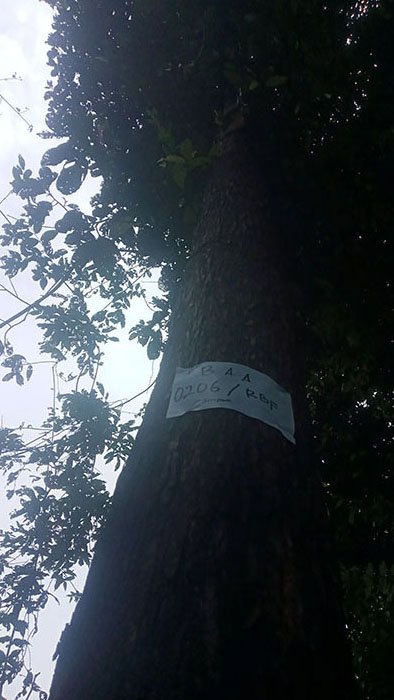 BAA
0206/RBF